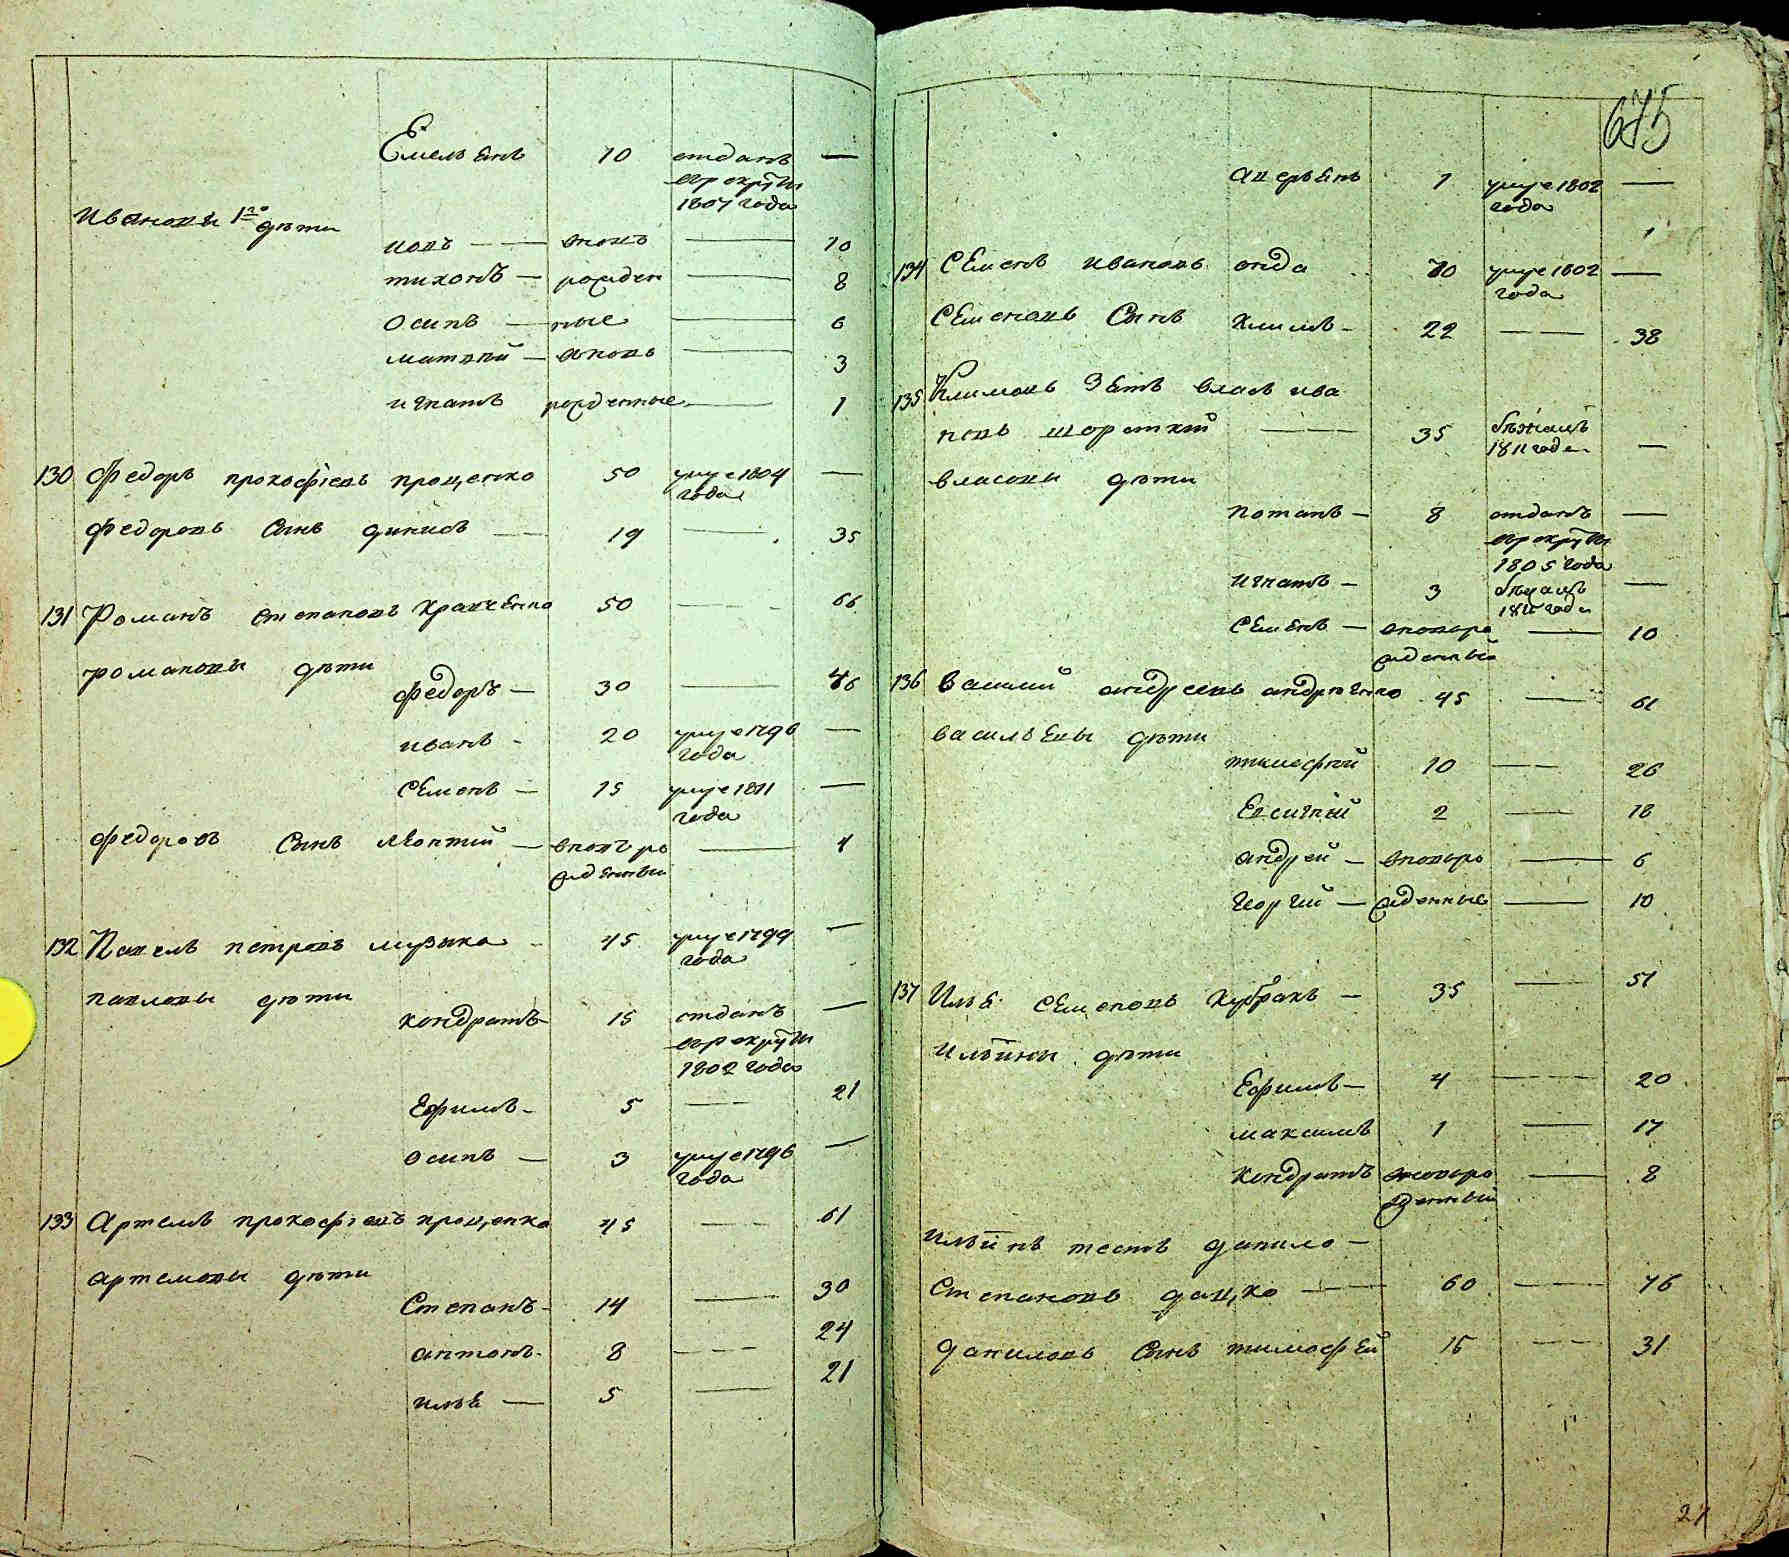 Емельянъ 10 отданъ —
въ рекруты
1807 года
Ивановы 1го дѣти
іовъ — вновь — 10
тихонъ — рожден — 8
Осипъ — ные — 6
матвѣй — вновь — 3
игнатъ рожденные — 1
130 Федоръ прокофіевъ проценко 50 умре 1804 —
года
Федоровъ Сынъ динисъ — 19 — 35
131 Романъ степановъ кравченко 50 — 66
романовы дѣти
Федоръ — 30 — 46
иванъ - 20 умре 1796 —
года
Семенъ — 15 умре 1811 —
года
Федоровъ Сынъ леонтий — вновь ро — 1
жденный
132 Павелъ петровъ музыка 45 умре 1799 —
года
павловы дѣти
кондратъ 15 отданъ —
въ рекруты
1802 года
Ефимъ - 5 — 21
Осипъ — 3 умре 1796 —
года
133 Артемъ прокофіевъ проценко 45 — 61
артемовы дѣти
Степанъ - 14 — 30
антонъ - 8 — 24
илья — 5 — 21
675
аверьянъ 1 умре 1802 —
года
134 Семенъ ивановъ 70 умре 1802 —
года
Семеновъ Сынъ климъ - 22 — 38
135 Климовъ Зять власъ ива
новъ — 35 бѣжалъ —
1811 года
власовы дѣти
потапъ — 8 отданъ —
въ рекруты
1805 года
игнатъ — 3 бѣжалъ —
1811 года
Семенъ — вновьро — 10
жденный
136 Василий андреевъ андрюенко 45 — 61
васильевы дѣти
тимофѣй 10 — 26
Евсигній 2 — 18
андрей — вновьро — 6
георгий — жденные — 10
137 Илья Семеновъ кубракъ — 35 — 51
Ильины дѣти
Ефимъ — 4 — 20
максимъ 1 — 17
кондратъ вновьро — 8
жденный
Ильинъ тесть данило —
Степановъ дацко — 60 — 76
даниловъ Сынъ тимофей 15 — 31
27